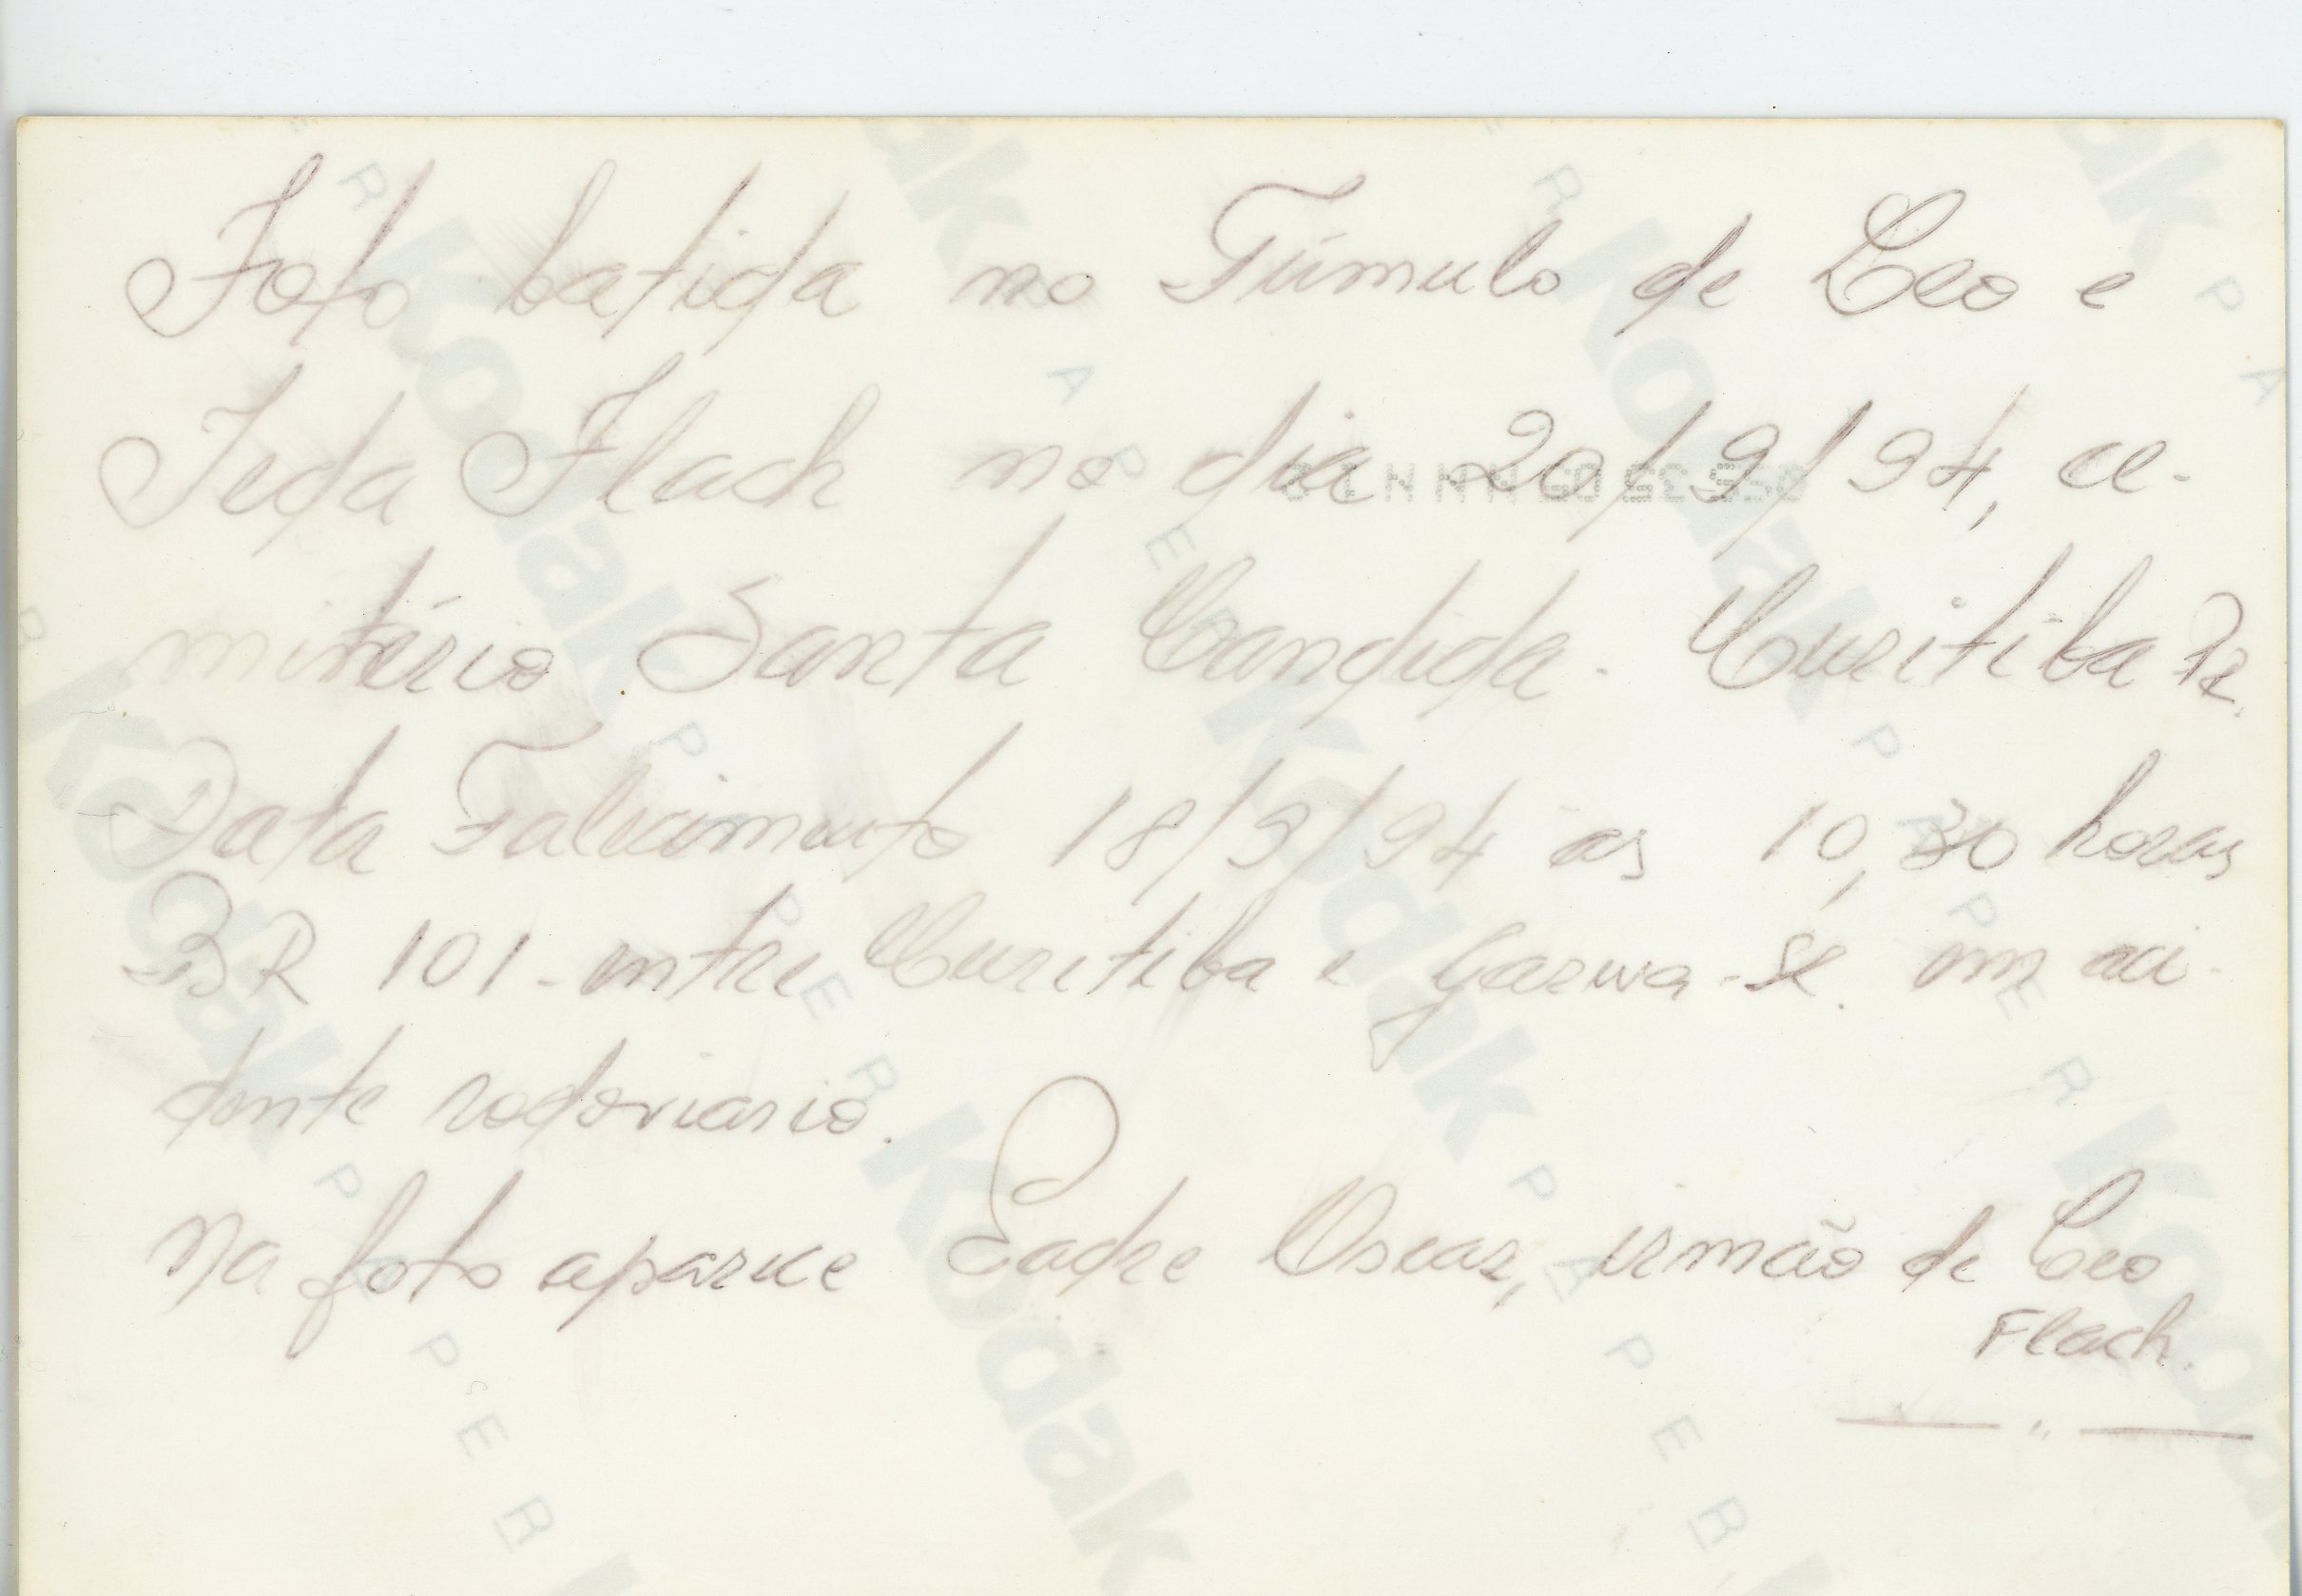 Foto batida no Túmulo de Leo e
Ieda Flach no dia 20/9/94, ce-
mitério Santa Candida. Curitiba Pr.
Data Falecimento 18/9/94 as 10,30 horas
BR 101 - entre Curitiba e Garuva - SC. em aci-
dente rodoviario.
Na foto aparece Padre Oscar, irmão de Leo
Flach.
Kodak PAPER